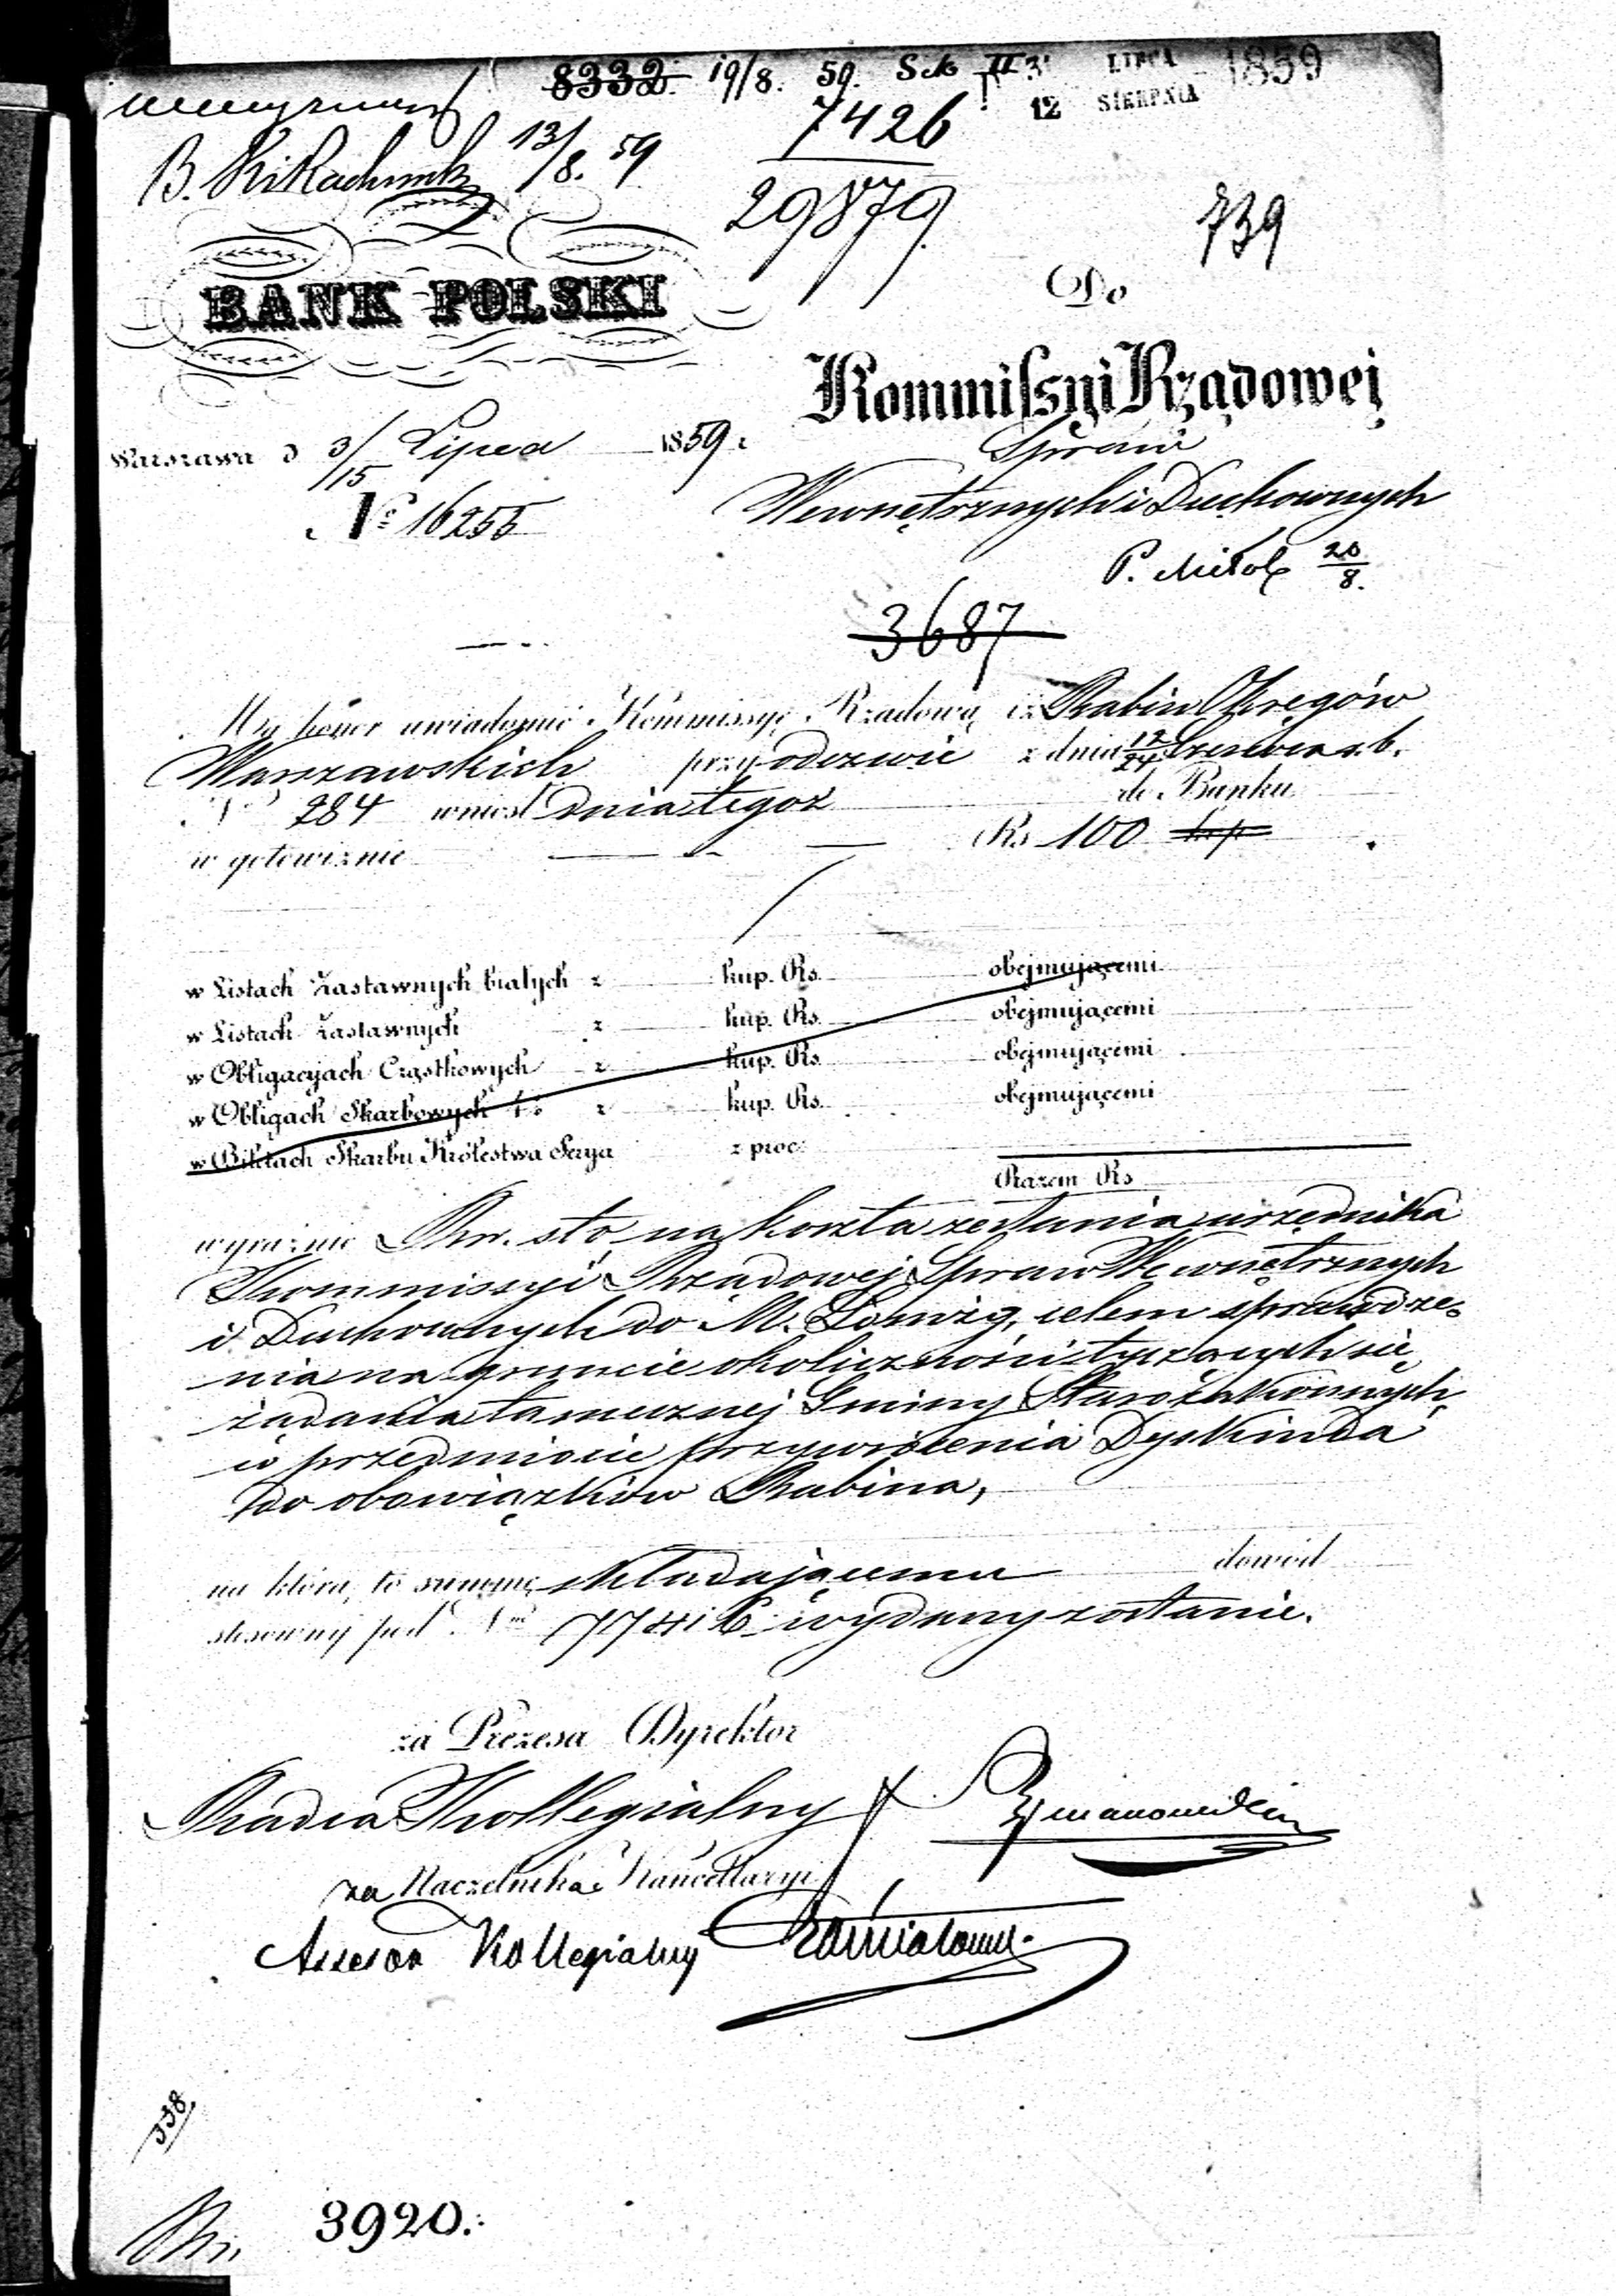 8332. 19/8. 59. Sek II
31 LIPCA
12 SIERPNIA 1859
13/8. 59
7426
29879
739
BANK POLSKI
Do
Kommissyi Rządowej
Spraw
Wewnętrznych i Duchownych
Warszawa d 3/15 Lipca 1859 r.
No 16255
P. 20/8.
3687
Ma honor uwiadomić Kommissyę Rządową iż Rabin Okręgów
Warszawskich przy odezwie z dnia 12/24 Czerwca r.b.
No 284 wniosł dnia tegoż do Banku
w gotowiznie Rs 100 kop
w Listach Zastawnych białych z kup. Rs. obejmującemi
w Listach Zastawnych z kup. Rs. obejmującemi
w Obligacyach Cząstkowych z kup. Rs. obejmującemi
w Obligach Skarbowych 4% z kup. Rs. obejmującemi
w Biletach Skarbu Królestwa Serya z proc:
Razem Rs
wyraźnie Rsr. sto na koszta zesłania urzędnika
Kommissyi Rządowej Spraw Wewnętrznych
i Duchownych do M. Łomży, celem sprawdze-
nia na gruncie okoliczności tyczących się
żądania tamecznej Gminy Starozakonnych,
w przedmiocie przywrócenia Dyskinda
do obowiązków Rabina,
na którą to summę składającemu dowód
stosowny pod Nrm 17741 wydany zostanie.
za Prezesa Dyrektor
Radca Kollegialny
za Naczelnika Kancellaryi
Assesor Kollegialny
338
3920.